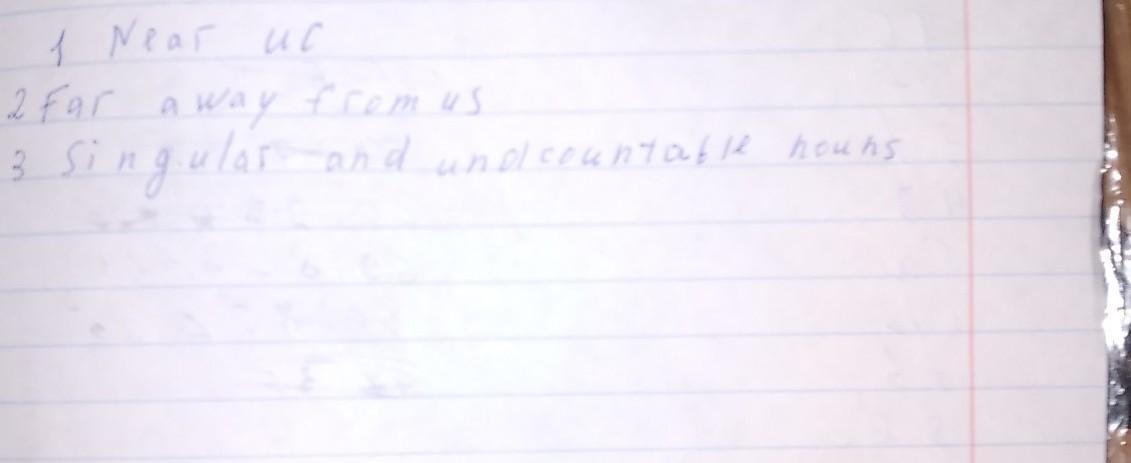 1 Near uc
2 Far away from us
3 Singular and undcountable nouns